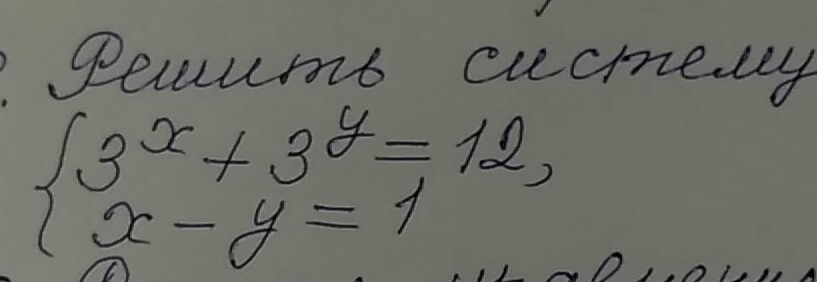 Решить систему
{ 3^x + 3^y = 12,
x - y = 1